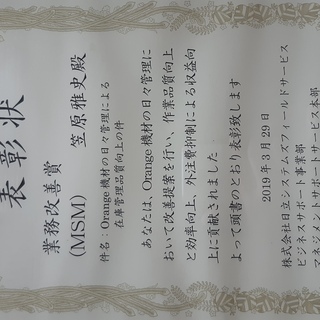 表彰状
業務改善賞
(MSM) 笠原雅史殿
件名：Orange機材の日々管理による
在庫管理品質向上の件
あなたは、Orange機材の日々管理に
おいて改善提案を行い、作業品質向上
と効率向上、外注費抑制による収益向
上に貢献されました
よって頭書のとおり表彰致します
2019年3月29日
株式会社日立システムズフィールドサービス
ビジネスサポート事業部
マネジメントサポートサービス本部